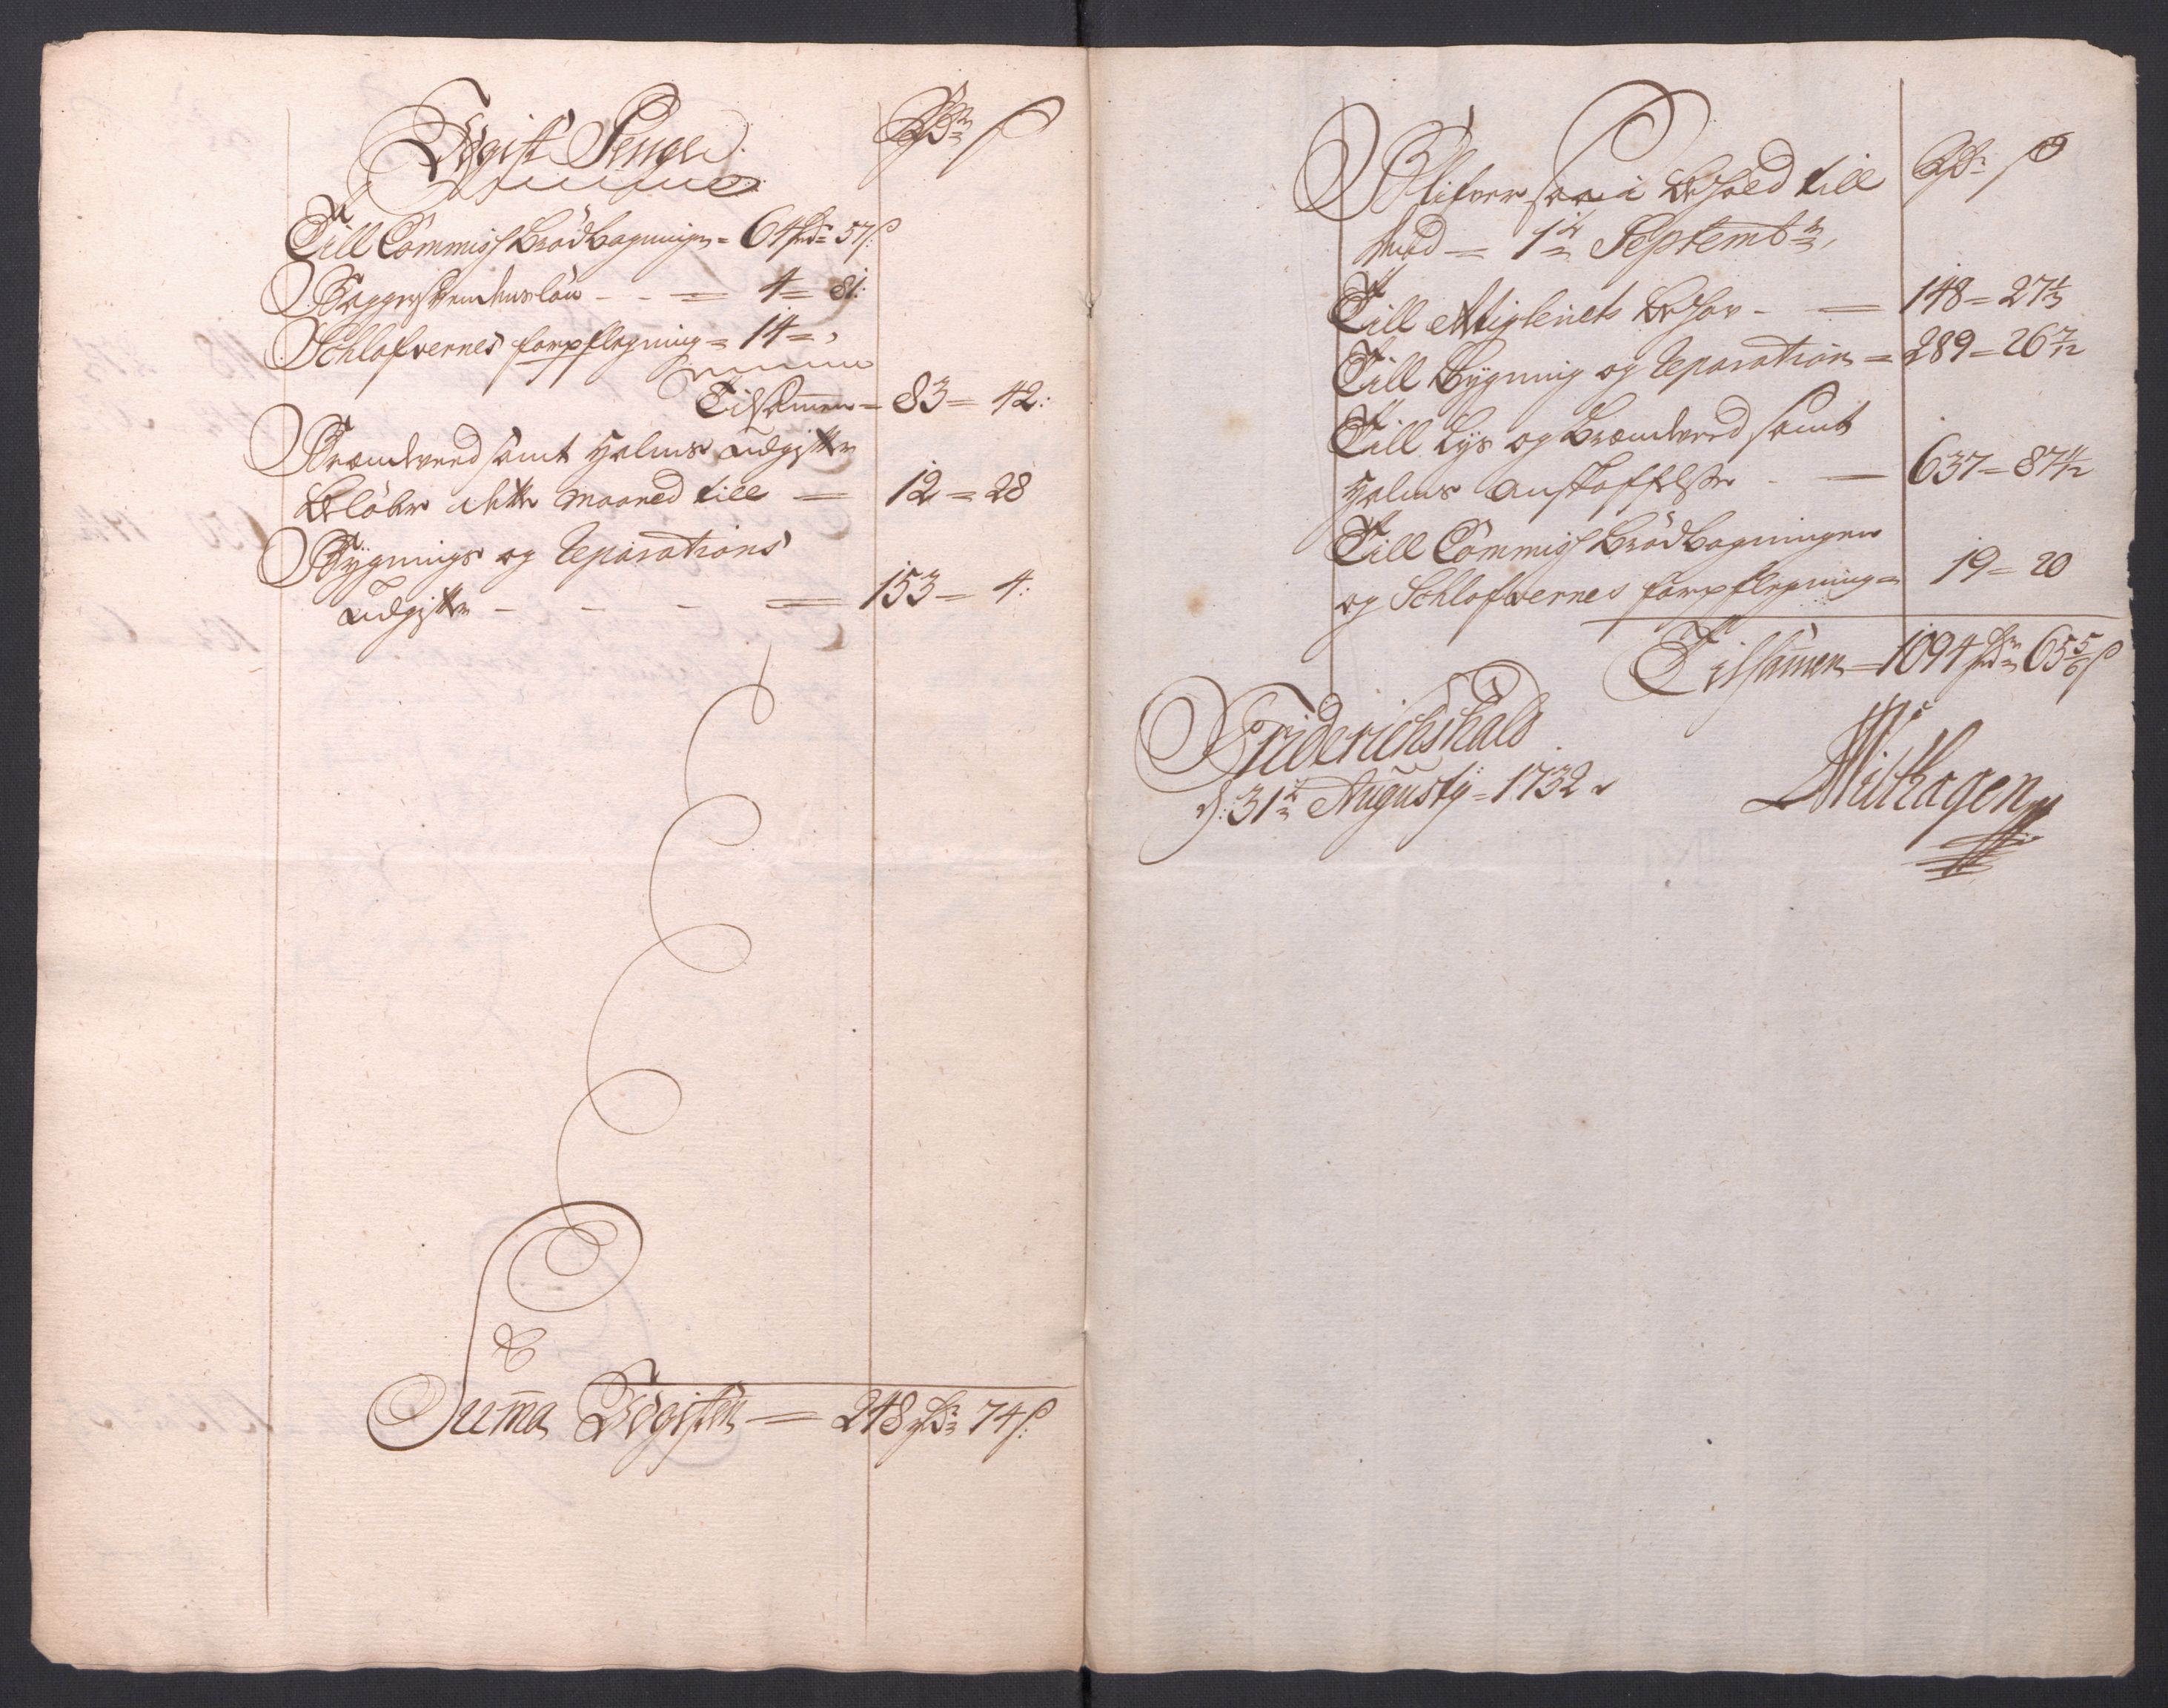 Udgift Penge
Rdr ß
Till Commiss brödbagningen = 64 Rdr = 57 ß:
Baggersvendens lön - - = 4 = 81:
Schlafvernes forpflegning = 14 = ,
Tilsamen = 83 = 42:
Brændeved samt Halms udgifter
belöber dette Maaned till = 12 = 28
Bygnings og Reparations
udgifter - - - = 153 = 4:
Suma Udgiften = 248 Rdr 74 ß:
Blifver saa i behold till
= 1te Septembr,
Rdr ß
Till behov - = 148 = 27 1/3
Till Bygning og Reparation = 289 = 26 7/12
Till Lys og brændeved samt
Halms anskaffelse - = 637 = 87 11/12
Till Commiss brödbagningen
og Schlafvernes forpflegning = 19 = 20
Tilsamen = 1094 Rdr 65 5/6 ß
Friderichshald
d: 31te Augusty = 1732
Withagen